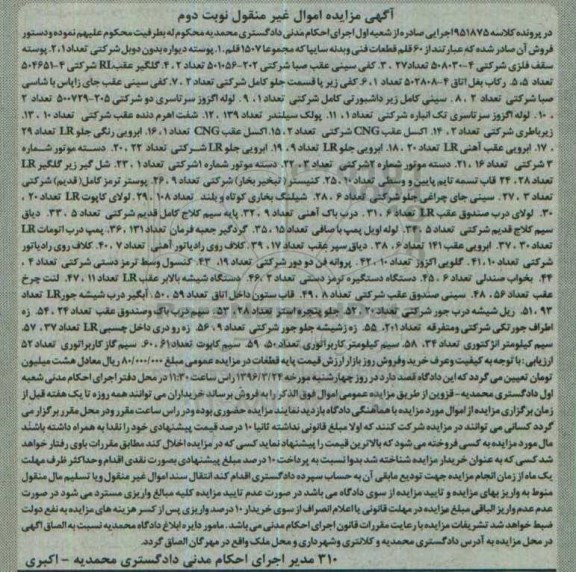 آگهی مزایده اموال غیر منقول نوبت دوم
در پرونده کلاسه ۹۵۱۸۷۵ اجرایی صادره از شعبه اول اجرای احکام مدنی دادگستری محمدیه محکوم له بطرفیت محکوم علیهم نموده و دستور
فروش آن صادر شده که عبارتند از ۶۰ قلم قطعات فنی و بدنه سایپا که مجموعا ۱۵۰۷ قلم. ۱. پوسته دیواره بدون دوبل شرکتی تعداد ۱، ۲. پوسته
سقف فلزی شرکتی ۴-۵۰۸۰۳۰ تعداد ۲۷، ۳. کفی سینی عقب صبا شرکتی ۲۰۲-۵۰۱۰۵۶ تعداد ۲، ۴. گلگیر عقب RI شرکتی ۴-۵۰۴۶۵۱
تعداد ۵، ۵. رکاب بغل اتاق ۴-۵۰۲۸۰۸ تعداد ۱، ۶. کفی زیر پا قسمت جلو کامل شرکتی تعداد ۲، ۷. کفی سینی عقب جای زاپاس با شاسی
صبا شرکتی تعداد ۲، ۸. سینی کامل زیر داشبورتی کامل شرکتی تعداد ۱، ۹. لوله اگزوز سرتاسری دو شرکتی ۲۰۵-۵۰۰۷۲۹ تعداد ۲
، ۱۰. لوله اگزوز سرتاسری تک انباره شرکتی تعداد ۱، ۱۱. پولک سیلندر تعداد ۱۳۹، ۱۲. شفت اهرم دنده عقب شرکتی تعداد ۱۰، ۱۳.
زیرباطری شرکتی تعداد ۲، ۱۴. اکسل عقب CNG شرکتی تعداد ۲، ۱۵. اکسل عقب CNG تعداد ۱، ۱۶. ابرویی رنگی جلو LR تعداد ۲۹
، ۱۷. ابرویی عقب آهنی LR تعداد ۲۰، ۱۸. ابرویی جلو LR تعداد ۹، ۱۹. ابرویی جلو LR شرکتی تعداد ۲۲، ۲۰. دسته موتور شماره
۳ شرکتی تعداد ۱۶، ۲۱. دسته موتور شماره ۲ شرکتی تعداد ۳، ۲۲. دسته موتور شماره ۱ شرکتی تعداد ۱، ۲۳. شل گیر زیر گلگیر LR
تعداد ۲۸، ۲۴ قاب تسمه تایم پایین و وسطی تعداد ۱۰، ۲۵. کنیستر (تبخیر بخار) شرکتی تعداد ۹، ۲۶. پوستر ترمز کامل (قدیم) شرکتی
تعداد ۳، ۲۷. سینی جای چراغی جلو شرکتی تعداد ۶، ۲۸. شیلنگ بخاری کوتاه و بلند تعداد ۱۰۸، ۲۹. لولای کاپوت LR تعداد ۲۰،
۳۰. لولای درب صندوق عقب LR تعداد ۶، ۳۱. درب باک آهنی تعداد ۹، ۳۲. پایه سیم کلاج کامل قدیم شرکتی تعداد ۵، ۳۳. دیاق
سیم کلاج قدیم شرکتی تعداد ۵، ۳۴. لوله اویل پمپ با صافی تعداد ۱۵، ۳۵. گردگیر جعبه فرمان تعداد ۱۳۱، ۳۶. پمپ درب اتومات LR
تعداد ۳۰، ۳۷. ابرویی عقب ۱۴۱ تعداد ۶، ۳۸. دیاق سپر عقب تعداد ۱۷، ۳۹. کلاف روی رادیاتور آهنی تعداد ۷، ۴۰. کلاف روی رادیاتور
شرکتی تعداد ۱۰، ۴۱. گلویی اگزوز تعداد ۱۰، ۴۲. پروانه فن دو دور شرکتی تعداد ۱۹، ۴۳. کنسول وسط ترمز دستی شرکتی تعداد ۴،
۴۴. بخواب صندلی تعداد ۶، ۴۵. دستگاه دستگیره ترمز دستی تعداد ۲، ۴۶. دستگاه شیشه بالابر عقب LR تعداد ۱۱، ۴۷. لنت چرخ
عقب تعداد ۵۶، ۴۸. سینی صندوق عقب شرکتی تعداد ۸، ۴۹. قاب ستون داخل اتاق تعداد ۵۹، ۵۰. آبگیر درب شیشه جور LR تعداد
۹۳، ۵۱. ریل شیشه درب جور شرکتی تعداد ۲۰، ۵۲. جلو پنجره استر تعداد ۲۸، ۵۳. سیم درب باک و صندوق عقب تعداد ۲۴، ۵۴. زه
اطراف جورتکی شرکتی ومتفرقه تعداد ۲۰۱، ۵۵. زه رشیشه جلو جور شرکتی تعداد ۹، ۵۶. زه رو دری داخل چسبی LR تعداد ۳۷، ۵۷.
سیم کیلومتر انژکتوری تعداد ۳۴، ۵۸. سیم کیلومتر کاربراتوری تعداد ۵۰، ۵۹. سیم کاپوت تعداد ۶۱، ۶۰. سیم گاز کاربراتوری تعداد ۵۲
ارزیابی: با توجه به کیفیت وعرف خرید وفروش روز بازار ارزش قیمت پایه قطعات در مزایده عمومی مبلغ ۸۰/۰۰۰/۰۰۰ ریال معادل هشت میلیون
تومان تعیین می گردد که این دادگاه قصد دارد در روز چهارشنبه مورخه ۱۳۹۶/۳/۲۴ راس ساعت ۱۱:۳۰ در محل دفتر اجرای احکام مدنی شعبه
اول دادگستری محمدیه - قزوین از طریق مزایده عمومی اموال فوق الذکر را به فروش برساند خریداران می توانند همه روزه تا یک هفته قبل از
زمان برگزاری مزایده از اموال مورد مزایده با هماهنگی دادگاه بازدید نمایند مزایده حضوری بوده ودر راس ساعت مقرر ودر محل مقرر برگزار می
گردد کسانی می توانند در مزایده شرکت کنند که اولا مبلغ قانونی نداشته ثانیا ۱۰ درصد قیمت پیشنهادی خود را نقدا به همراه داشته باشند
مال مورد مزایده به کسی فروخته می شود که بالاترین قیمت را پیشنهاد نماید کسی که در مزایده اخلال کند مطابق مقررات باوی رفتار خواهد
شد کسی که به عنوان خریدار مزایده شناخته شد بدوا نسبت به پرداخت ۱۰ درصد مبلغ پیشنهادی بصورت نقدی اقدام وحداکثر ظرف مهلت
یک ماه از زمان انجام مزایده جهت تودیع مابقی آن به حساب سپرده دادگستری اقدام کند انتقال سند اموال غیر منقول ویا تسلیم مال منقول
منوط به واریز بهای مزایده و تایید مزایده از سوی دادگاه می باشد در صورت عدم تایید مزایده کلیه مبالغ واریزی مسترد می شود در صورت
عدم واریز الباقی مبلغ مزایده در مهلت قانونی یا اعلام انصراف از سوی خریدار ۱۰ درصد واریزی پس از کسر هزینه های مزایده به نفع دولت
ضبط خواهد شد تشریفات مزایده با رعایت مقررات قانون اجرای احکام مدنی می باشد. مامور دایره ابلاغ دادگاه محمدیه نسبت به الصاق آگهی
در محل مزایده به آدرس دادگستری محمدیه و کلانتری وشهرداری و محل ملک واقع در مهرگان الصاق گردد.
۳۱۰ مدیر اجرای احکام مدنی دادگستری محمدیه - اکبری